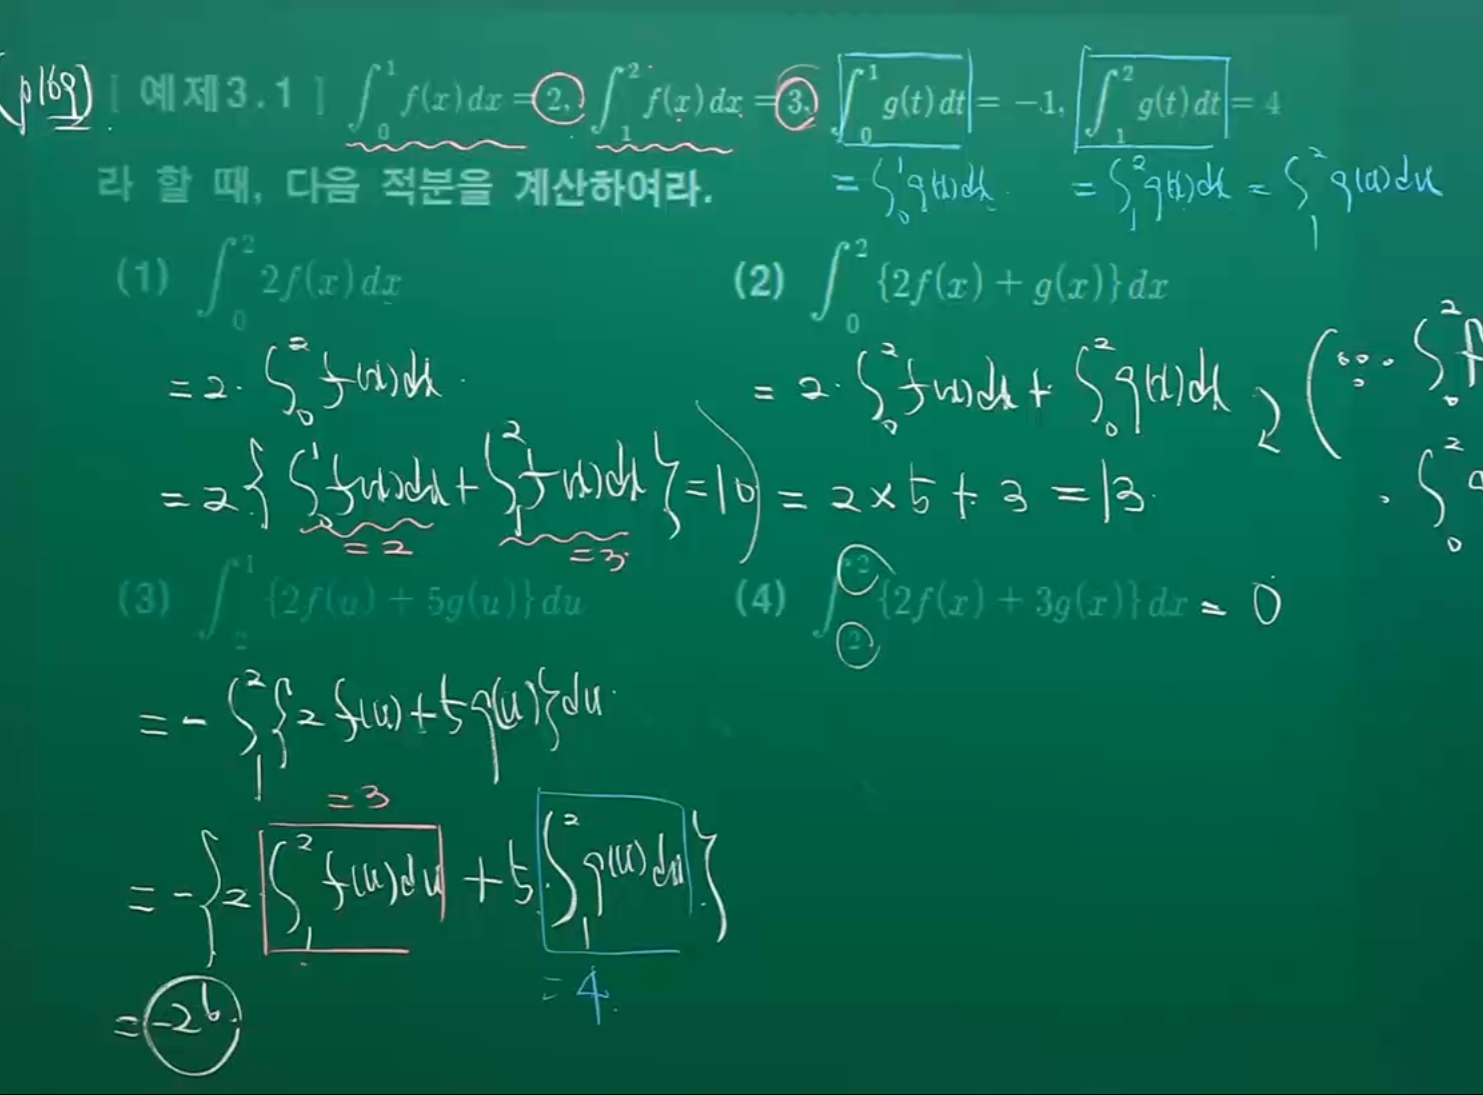 (p169) [ 예제3.1 ] ∫₀¹ f(x)dx = 2, ∫₁² f(x)dx = 3, ∫₀¹ g(t)dt = -1, ∫₁² g(t)dt = 4
라 할 때, 다음 적분을 계산하여라.
= ∫₀¹ g(x)dx = ∫₁² g(x)dx = ∫₁² g(u)du
(1) ∫₀² 2f(x)dx
= 2·∫₀² f(x)dx
= 2·{∫₀¹ f(x)dx + ∫₁² f(x)dx} = 10
= 2 = 3
(2) ∫₀² {2f(x) + g(x)}dx
= 2·∫₀² f(x)dx + ∫₀² g(x)dx
= 2 × 5 + 3 = 13
(3) ∫₂¹ {2f(u) + 5g(u)}du
= -∫₁² {2f(u) + 5g(u)}du
= 3
= -{2∫₁² f(u)du + 5·∫₁² g(u)du}
= 4
= -26
(4) ∫₂² {2f(x) + 3g(x)}dx = 0